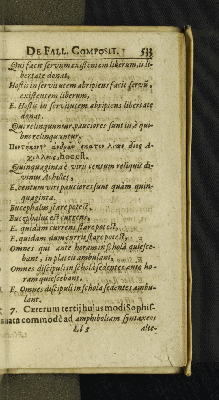 DE FALL. COMPOSIT. 533
Qui facit servum existentem liberum, is li-
bertate donat,
Hostis in servitutem abripiens facit servũ,
existentem liberum,
E. Hostis in servitutem abripiens libertate
donat.
Qui relinquuntur, pauciores sunt iis, è qui-
bus relinquuntur.
ἀνδρῶν ἑκατὸν λίπε δῖος Ἀ-
χιλλεύς, hoc est,
Quinquaginta è viris centum reliquit di-
vinus Achilles,
E. centum viri pauciores sunt quam quin-
quaginta.
Bucephalus stare potest,
Bucephalus est currens,
E. quidam currens stare potest,
E. quidam dum currit stare potest,
Omnes qui ante horam in schola quiesce-
bant, in plateis ambulant,
Omnes discipuli in schola sedentes ante ho-
ram quiescebant,
E. Omnes discipuli in schola sedentes ambu-
lant.
7. Cæterum tertij hujusmodi Sophis-
mata commodè ad amphiboliam syntaxeos
Ll 5 alte-